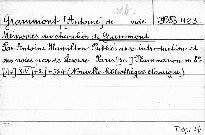 Grammont, [Antoine] de
Mémoires du chevalier de Grammont
Par Antoine Hamilton. Publiés avec introduction et
des notes par de Lescure. Paris [s.a.] Flammarion m. 8°
[IV] XIV [+2] + 364 (Nouvelle bibliothèque classique)